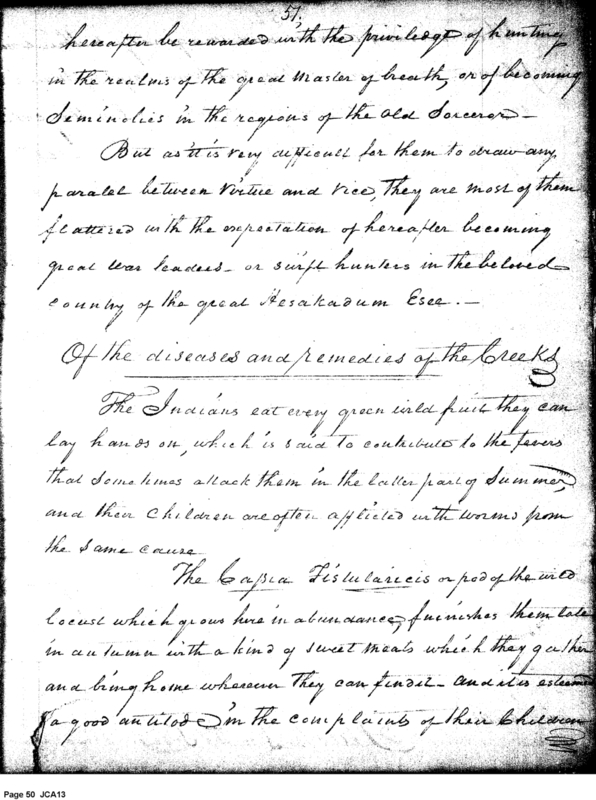 51.
hereafter be rewarded with the priviledge of hunting
in the realms of the great Master of breath, or of becoming
Seminolies in the regions of the old Sorceror—
But as it is very difficult for them to draw any
paralel between virtue and vice, they are most of them
flattered with the expectation of hereafter becoming
great war leaders— or swift hunters in the beloved
country of the great Hesakadum Esee.—
Of the diseases and remedies of the Creeks
The Indians eat every green wild fruit they can
lay hands on, which is said to contribute to the fevers
that sometimes attack them in the latter part of Summer,
and their Children are often afflicted with worms from
the same cause
The Cassia Fistularicis or pod of the wild
locust which grows here in abundance, furnishes them late
in autumn with a kind of sweet meats which they gather
and bring home wherever they can find it— and it is esteemed
a good antitode in the complaints of their Children
Page 50 JCA13